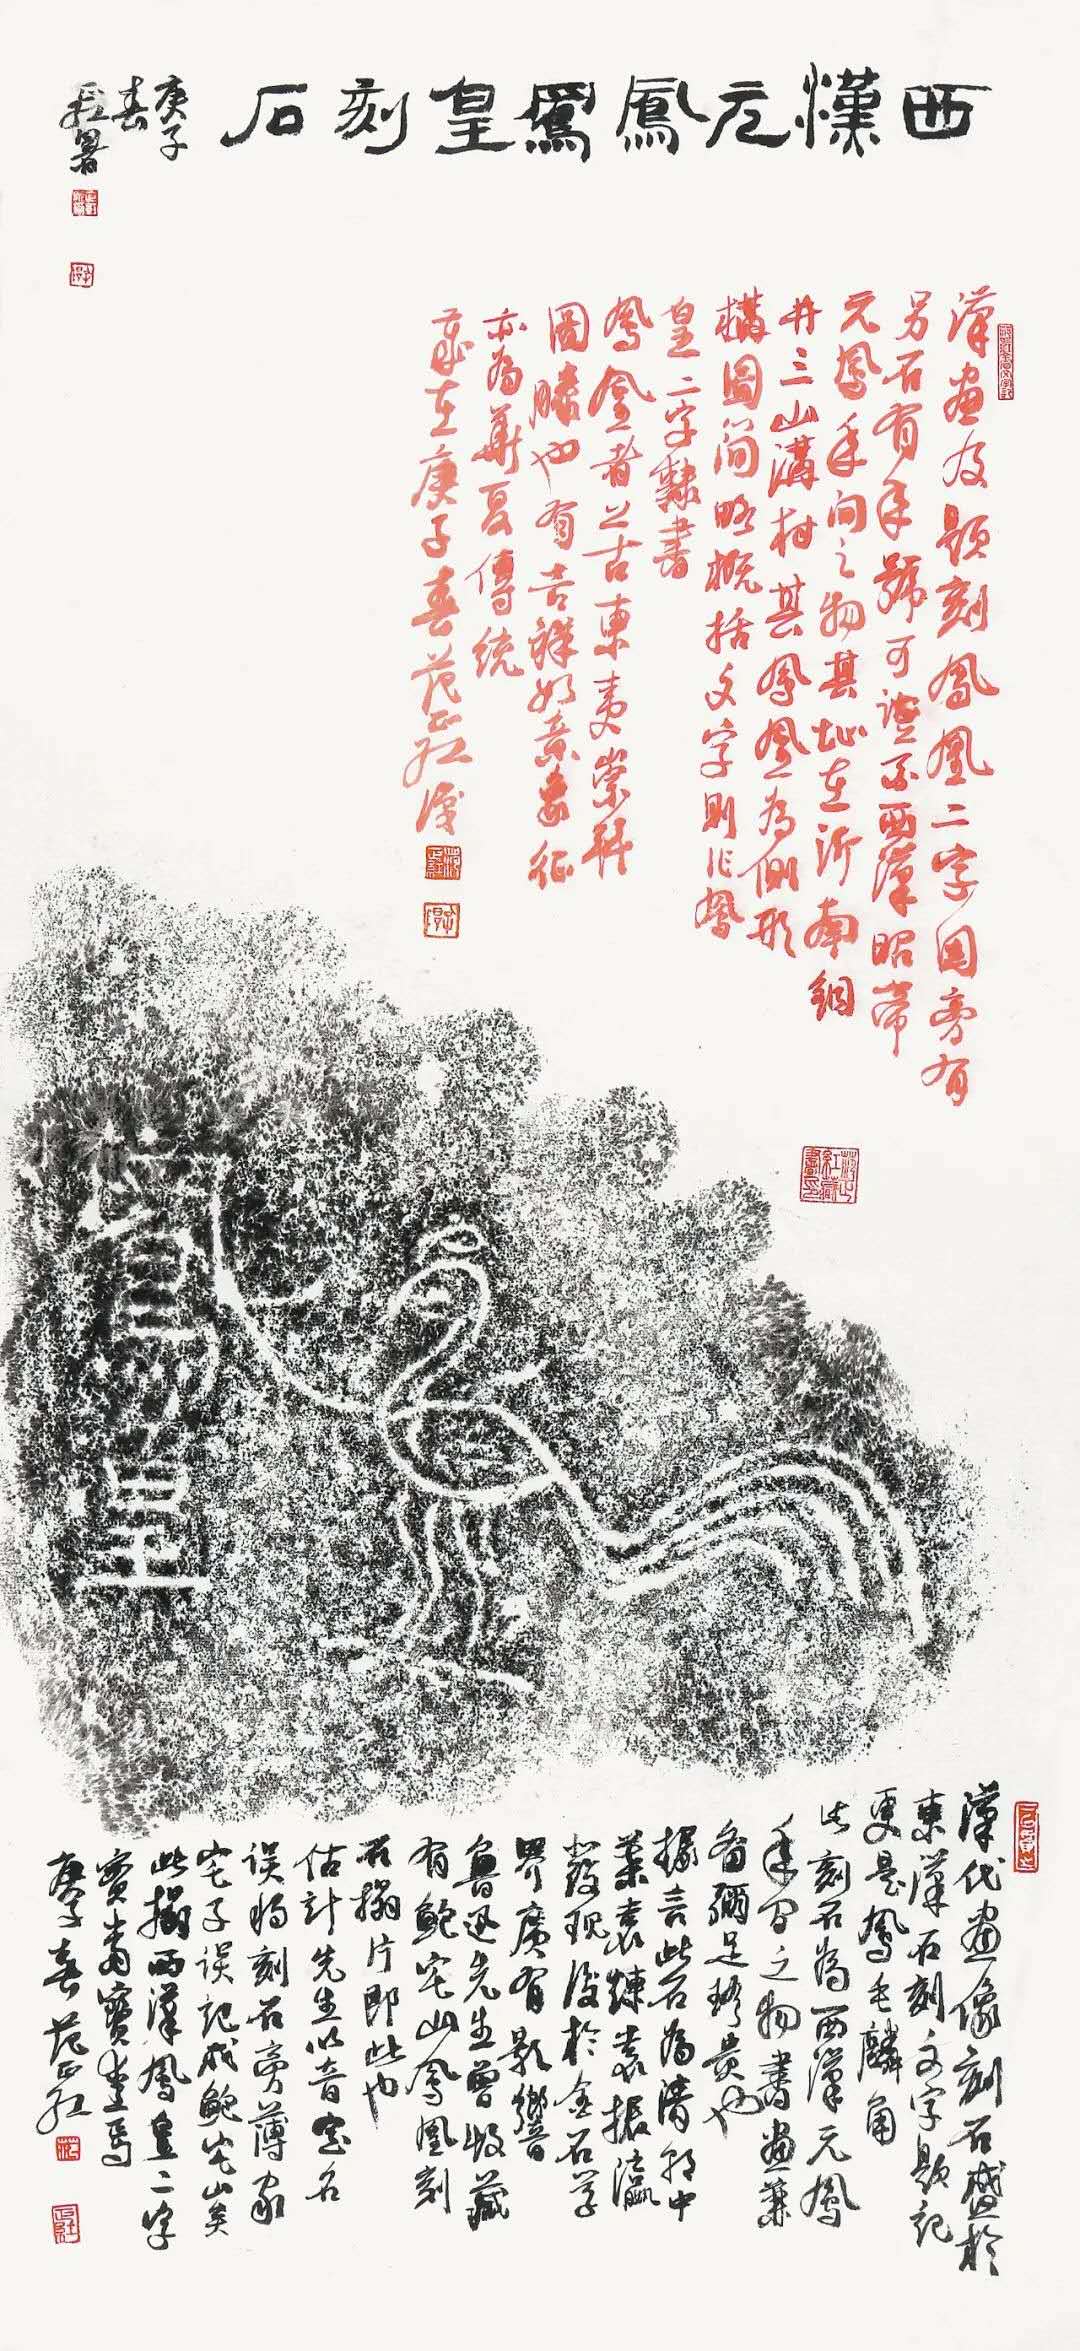 西漢元鳳鳳皇刻石
庚子
春
漢畫及題刻鳳凰二字圖旁有
另石有年號可證系西漢昭帝
元鳳年间之物其址在沂南銅
井三山溝村其鳳凰為側形
構圖简略概括文字則作鳳
皇二字隸書
鳳凰者上古東夷崇拜
圖騰也有吉祥如意象征
亦為華夏傳統
歲在庚子春范正红識
鳳皇
漢代畫像刻石盛於
東漢石刻文字題記
更是鳳毛麟角
此刻石為西漢元鳳
年间之物書畫兼
備彌足珍貴也
據言此石為清郭中
葉袁煉袁振瀛
發現後於金石学
界廣有影響
魯迅先生曾收藏
有鮑宅山鳳凰刻
石搨片即此也
估計先生以音定名
误將刻石旁薄家
宅子误記成鮑宅山矣
此搨西漢鳳皇二字
寶貴寶重焉
庚子春范正红